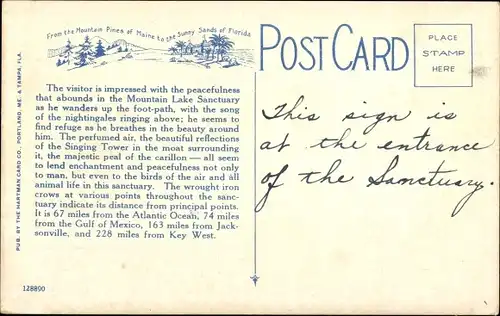 From the Mountain Pines of Maine to the Sunny Sands of Florida
POST CARD
PLACE
STAMP
HERE
The visitor is impressed with the peacefulness
that abounds in the Mountain Lake Sanctuary
as he wanders up the foot-path, with the song
of the nightingales ringing above; he seems to
find refuge as he breathes in the beauty around
him. The perfumed air, the beautiful reflections
of the Singing Tower in the moat surrounding
it, the majestic peal of the carillon — all seem
to lend enchantment and peacefulness not only
to man, but even to the birds of the air and all
animal life in this sanctuary. The wrought iron
crows at various points throughout the sanc-
tuary indicate its distance from principal points.
It is 67 miles from the Atlantic Ocean, 74 miles
from the Gulf of Mexico, 163 miles from Jack-
sonville, and 228 miles from Key West.
PUB. BY THE HARTMAN CARD CO., PORTLAND, ME. & TAMPA, FLA.
128890
This sign is
at the entrance
of the Sanctuary.